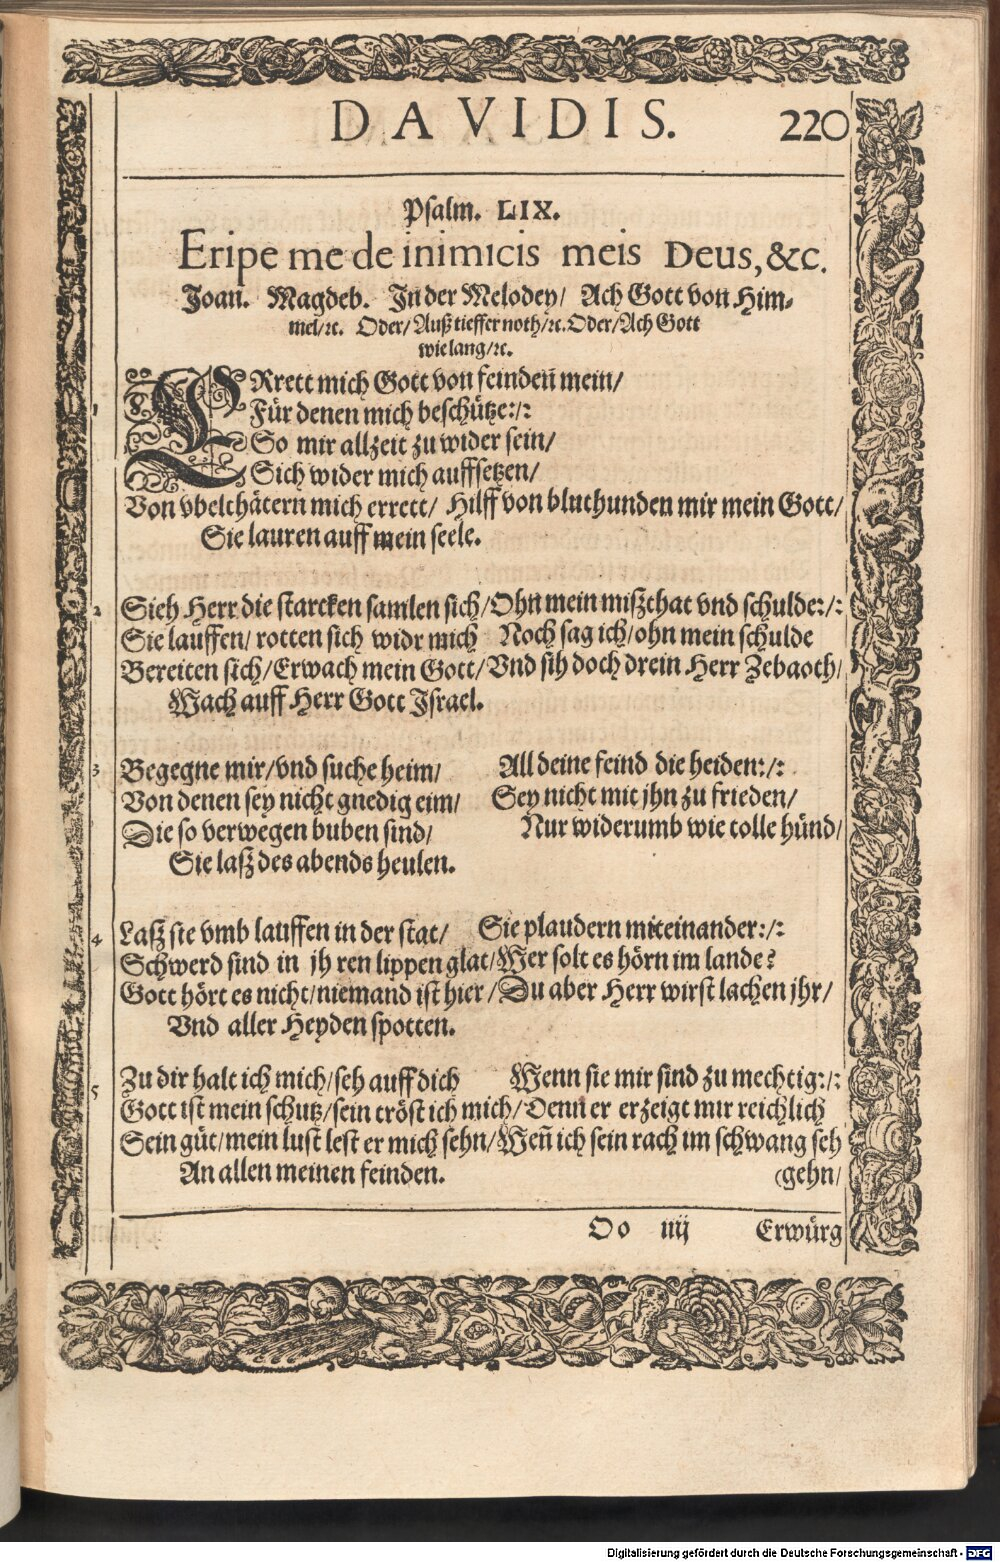 DAVIDIS. 220
Psalm. LIX.
Eripe me de inimicis meis Deus, &c.
Joan. Magdeb. In der Melodey/ Ach Gott von Him-
mel/ꝛc. Oder/ Auß tieffer noth/ꝛc. Oder/Ach Gott
wie lang/ꝛc.
1 ERrett mich Gott von feindeñ mein/
Für denen mich beschütze:/:
So mir allzeit zu wider sein/
Sich wider mich auffsetzen/
Von vbelthätern mich errett/ Hilff von bluthunden mir mein Gott/
Sie lauren auff mein seele.
2 Sieh Herr die starcken samlen sich/Ohn mein mißthat vnd schulde:/:
Sie lauffen/ rotten sich widr mich Noch sag ich/ohn mein schulde
Bereiten sich/Erwach mein Gott/Vnd sih doch drein Herr Zebaoth/
Wach auff Herr Gott Israel.
3 Begegne mir/vnd suche heim/ All deine feind die heiden:/:
Von denen sey nicht gnedig eim/ Sey nicht mit jhn zu frieden/
Die so verwegen buben sind/ Nur widerumb wie tolle hünd/
Sie laß des abends heulen.
4 Laß sie vmb lauffen in der stat/ Sie plaudern miteinander:/:
Schwerd sind in jh ren lippen glat/Wer solt es hörn im lande?
Gott hört es nicht/niemand ist hier/Du aber Herr wirst lachen jhr/
Vnd aller Heyden spotten.
5 Zu dir halt ich mich/seh auff dich Wenn sie mir sind zu mechtig:/:
Gott ist mein schutz/sein tröst ich mich/Denn er erzeigt mir reichlich
Sein güt/mein lust lest er mich sehn/Weñ ich sein rach im schwang seh
An allen meinen feinden. (gehn/
Oo iiij Erwürg
Digitalisierung gefördert durch die Deutsche Forschungsgemeinschaft - DFG